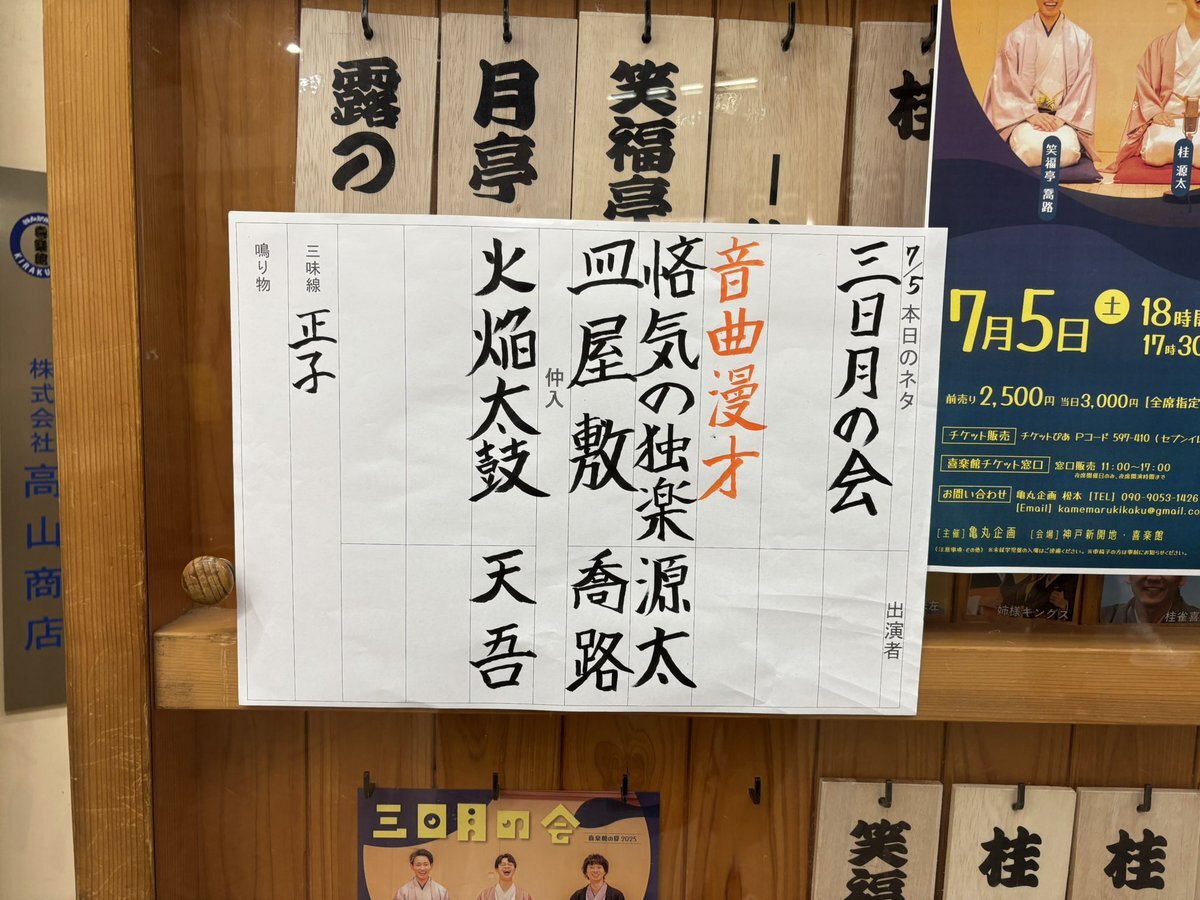 露の
月亭
笑福亭
桂
7/5 本日のネタ
出演者
三日月の会
音曲漫才
悋気の独楽 源太
皿屋敷 喬路
仲入
火焔太鼓 天吾
三味線 正子
鳴り物
笑福亭 喬路
桂 源太
7月5日 土 18時開
17時30
前売り2,500円 当日3,000円 [全席指定
チケット販売 チケットぴあ Pコード 597-410 (セブンイレ
喜楽館チケット窓口 窓口販売 11:00〜17:00
お問い合わせ 亀丸企画 松本 [TEL] 090-9053-1426
[Email] kamemarukikaku@gmail.co
[主催] 亀丸企画 [会場] 神戸新開地・喜楽館
姉様キングス
桂雀喜
株式会社 高山商店
喜楽館
KIRAKU
三日月の会
喜楽館の夏 2025
笑福
桂
桂